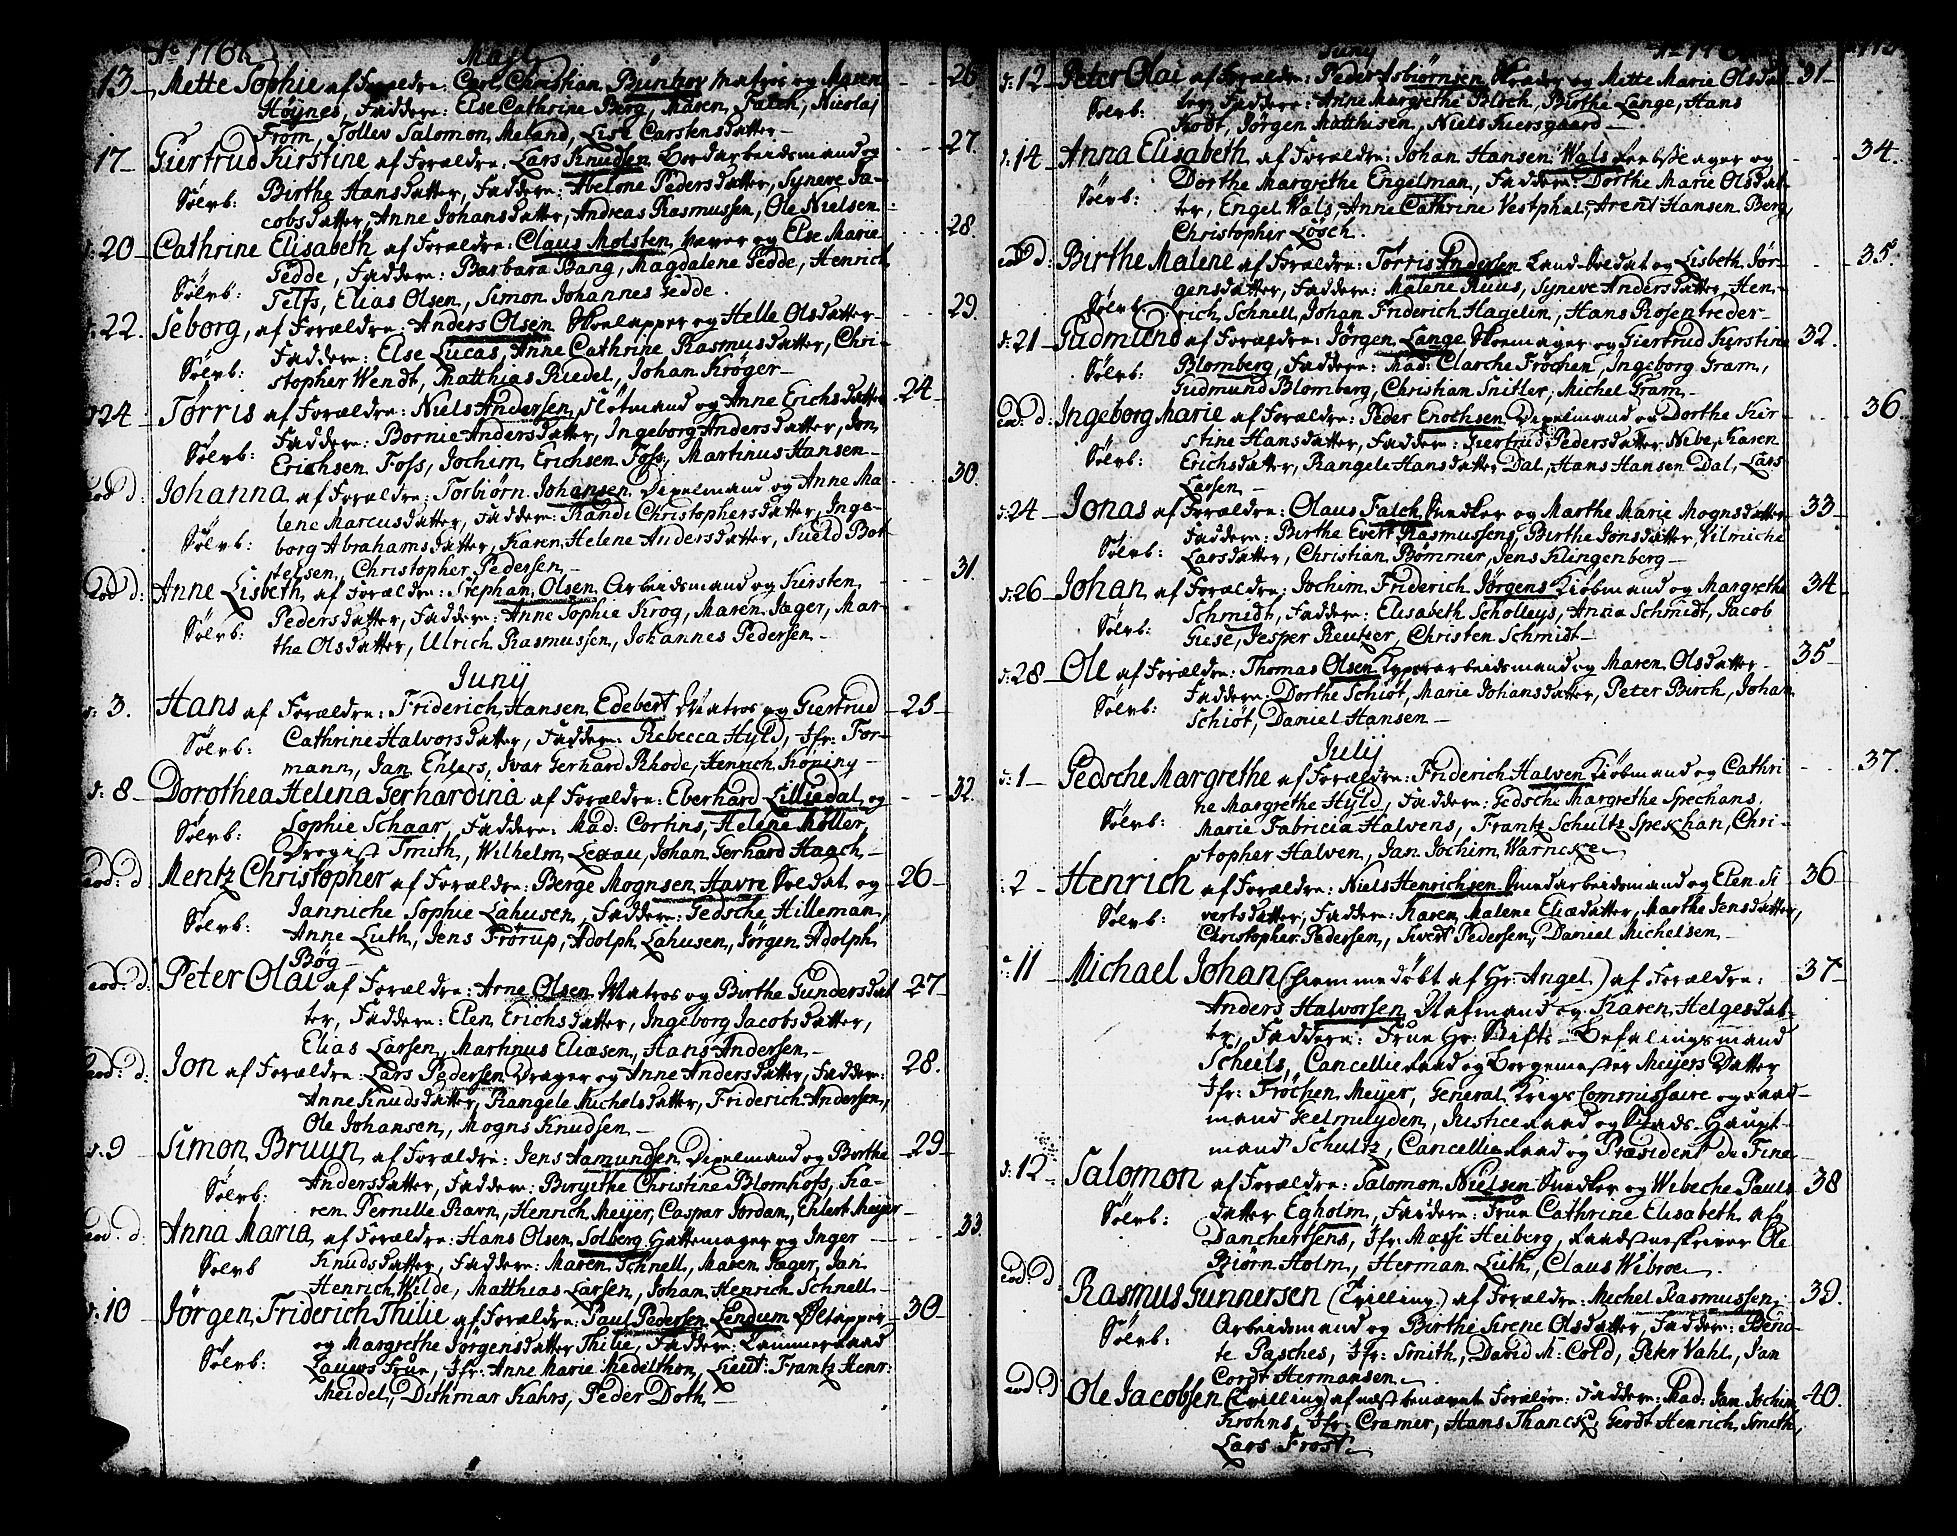 Ao 176
Maji
13 Mette Sophie af Forældre: Carl Christian Bunhov Matros og Maren 26
Høynes, Faddere: Else Cathrine Berg, Maren Falch, Nicolaj
Frøm, Tollev Salomon Meland, Lise Carstensdatter
17 Giertrud Kirstine af Forældre: Lars Knudsen Bordarbeidsmand og 27.
Sølvb: Birthe Hansdatter, Faddere: Abelone Pedersdatter, Syneve Ja-
cobsdatter, Anne Johansdatter, Andreas Rasmussen, Ole Nielsen
20 Cathrine Elisabeth af Forældre: Claus Molsten, Væver og Else Marie 28.
Sølvb: Fedde, Faddere: Barbara Bang, Magdalene Fedde, Henrich
Telfs, Elias Olsen, Simon Johannes Fedde.
22. Seborg, af Forældre: Anders Olsen Skoelapper og Helle Olsdatter 29.
Sølvb: Faddere: Else Lucas, Anne Cathrine Rasmusdatter, Chri-
stopher Wendt, Matthias Riedel, Johan Krøger
24 Tørris af Forældre: Niels Andersen, Fløtmand og Anne Erichsdatter 24.
Sølvb: Faddere: Bornie Andersdatter, Ingeborg Andersdatter, Jon
Erichsen Foss, Jochim Erichsen Foss, Martinus Hansen
eod d: Johanna af Forældre: Torbiørn Johansen Dipelmand og Anne Ma 30.
lene Marcusdatter, Faddere: Rande Christophersdatter, Inge-
Sølvb: borg Abrahamsdatter, Karen Helene Andersdatter, Siveld Bot
telsen, Christopher Pedersen
Eod d: Anne Lisbeth, af Forældre: Stephan Olsen Arbeidsmand og Kirsten 31.
Sølvb: Pedersdatter, Faddere: Anne Sophie Krog, Maren Jager, Mar-
the Olsdatter, Ulrich Rasmussen, Johannes Pedersen
Juny
3. Hans af Forældre: Friderich Hansen Edebert Matros og Giertrud 25
Sølvb: Cathrine Halvorsdatter, Faddere: Rebecca Hyld, Jfr: For-
mann, Jan Ehlers, Ivar Gerhard Rhode, Henrich Köning
d: 8 Dorothea Helena Gerhardina af Forældre: Eberhard Lilliedal og 32.
Sølvb: Sophie Schaar, Faddere: Mad: Cortins, Helene Møller,
Drogist Smith, Wilhelm Lexau, Johan Gerhard Haach
eod: d Mentz Christopher af Forældre: Berge Mognsen Havre Soldat og 26
Sølvb: Janniche Sophie Lahusen, Faddere: Gedsche Hilleman,
Anne Luth, Jens Frørup, Adolph Lahusen, Jørgen Adolph
Bøg
eod. d. Peter Olai af Forældre: Arne Olsen Matros og Birthe Gundersdat 27
ter, Faddere: Elen Erichsdatter, Ingeborg Jacobsdatter,
Elias Larsen, Martinus Eliæsen, Hans Andersen
eod: d: Jon af Forældre: Lars Pedersen Drager og Anne Andersdatter, Faddere: 28.
Anne Knudsdatter, Rangele Michelsdatter, Friderich Andersen,
Ole Johansen, Mogns Knudsen
d: 9 Simon Bruun, af Forældre: Jens Aamundsen Dipelmand og Birthe 29
Sølvb: Andersdatter, Faddere: Birgithe Christina Blomhofs, Ka-
ren Pernille Ravn, Henrich Meyer, Caspar Jordan, Ehlert Meyer
eod. d. Anna Maria, af Forældre: Hans Olsen Solberg Hattemager og Inger 33
Sølvb Knudsdatter, Faddere: Maren Schnell, Maren Jager, Jan
Henrich Wilde, Matthias Larsen, Johan Henrich Schnell
d: 10 Jørgen Friderich Thilie af Forældre: Paul Pedersen Lendum Øltapper 30
og Margrethe Jørgensdatter Thilie, Faddere: Kammerraad
Sølvb: Lauws Frue, Jfr: Anne Marie Medelthon, Lieut: Frantz Henr:
Meidel, Dithmar Kahrs, Peder Doth
Juny
d: 12 Peter Olai af Forældre: Peder Asbiørnsen Skræder og Mette Marie Olsdat 31
Sølvb: ter, Faddere: Anne Margrethe Bloch, Birthe Lange, Hans
Kodt, Jørgen Matthisen, Niels Kiersgaard
14 Anna Elisabeth, af Forældre: Johan Hansen Wals og 34.
Sølvb: Dorthe Margrethe Engelman, Faddere: Dorthe Marie Olsdat
ter, Engel Wals, Anne Cathrine Vestphal, Arent Hansen Berg,
Christopher Losch.
eod d: Birthe Malene af Forældre: Tørris Andersen Land-Soldat og Lisbeth Jør- 35.
gensdatter, Faddere: Malene Ruus, Syneve Andersdatter, Hen-
Sølvb rich Schnell, Johan Friderich Hagelin, Hans Rosentreder
d: 21 Gudmund af Forældre: Jørgen Lange Skoemager og Giertrud Kirstine 32.
Sølvb: Blomberg, Faddere: Mad: Clarche Frøchen, Ingeborg Gram,
Gudmund Blomberg, Christian Snitler, Michel Gram
eod. d. Ingeborg Marie af Forældre: Peder Enothsen Dipelmand og Dorthe Kir- 36.
stine Hansdatter, Faddere: Giertrud Pedersdatter Nibe, Karen
Sølvb: Erichsdatter, Rangele Hansdatter Dal, Hans Hansen Dal, Lars
Larsen
24 Jonas af Forældre: Olaus Falch Snedker og Marthe Marie Mognsdatter 33.
Sølvb: Faddere: Birthe Evert Rasmussens, Birthe Jonsdatter, Vilmiche
Larsdatter, Christian Bømmer, Jens Klingenberg
d: 26 Johan af Forældre: Jochim Friderich Jørgens Kiøbmand og Margrethe 34
Sølvb: Schmidt, Faddere: Elisabeth Scholleys, Anna Schmidt, Jacob
Giese, Jesper Reutzer, Christen Schmidt
d: 28 Ole af Forældre: Thomas Olsen arbeidsmand og Maren Olsdatter 35
Sølvb: Faddere: Dorthe Schiøt, Marie Johansdatter, Peter Birch, Johan
Schiøt, Daniel Hansen
July
d: 1 Gedsche Margrethe af Forældre: Friderich Halven Kiøbmand og Cathri 37.
Sølvb: ne Margrethe Hyld, Faddere: Gedsche Margrethe Spechans,
Marie Fabricia Halvens, Frantz Schultz Spekhan, Chri-
stopher Halven, Jan Jochim Warncke
2 Henrich af Forældre: Niels Henrichsen Smedarbeidsmand og Elen Si 36
Sølvb: vertsdatter, Faddere: Karen Malene Eliædatter, Marthe Jensdatter,
Christopher Pedersen, Sivert Pedersen, Daniel Michelsen
11 Michael Johan (hiemmedøbt af Hr: Angel) af Forældre: 37
Anders Halvorsen Stafmand og Karen Helgesdat-
ter, Faddere: Frue Gr: Stifts-Befalingsmand
Scheels, Cancellieraad og Borgemester Meyers Datter
Jfr: Frøchen Meyer, General Krigs Commissaire og Raad-
mand Geelmuyden, Justiceraad og Stads-Haupt-
mand Schultz, Cancellieraad og Præsident De Fine
d: 12 Salomon af Forældre: Salomon Nielsen Snedker og Wibeche Pauls 38
Sølvb: datter Egholm, Faddere: Frue Cathrine Elisabeth af
Danchertsens, Jfr: Massi Heiberg, Raadstueskriver Ole
Biørn Holm, Herman Luth, Claus Wibroe
eod. d Rasmus Gunnersen (Tvilling) af Forældre: Michel Rasmussen, 39.
Sølvb: Arbeidsmand og Birthe Sirene Olsdatter, Faddere: Bend-
te Pasches, Jfr: Smith, David M: Cold, Peter Vahl, Jan
Cordt Hermansen
eod. d Ole Jacobsen (Tvilling) af næstbenævnte Forældre: Faddere: Mad: Jan Jochim 40.
Krohns, Jfr: Cramer, Hans Thanck, Gerdt Henrich Smith,
Lars Frost